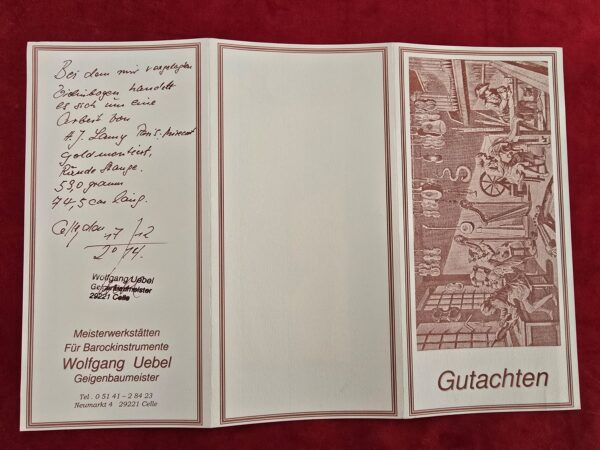 Bei dem mir vorgelegten
handelt
es sich um eine
Arbeit von
A.J. Lamy Paris.
goldmontiert,
Runde Stange.
59,0 gramm
74,5 cm lang.
Celle, den 17/12
2014.
Wolfgang Uebel
Geigenbaumeister
29221 Celle
Meisterwerkstätten
Für Barockinstrumente
Wolfgang Uebel
Geigenbaumeister
Tel. 0 51 41 – 2 84 23
Neumarkt 4 29221 Celle
Gutachten